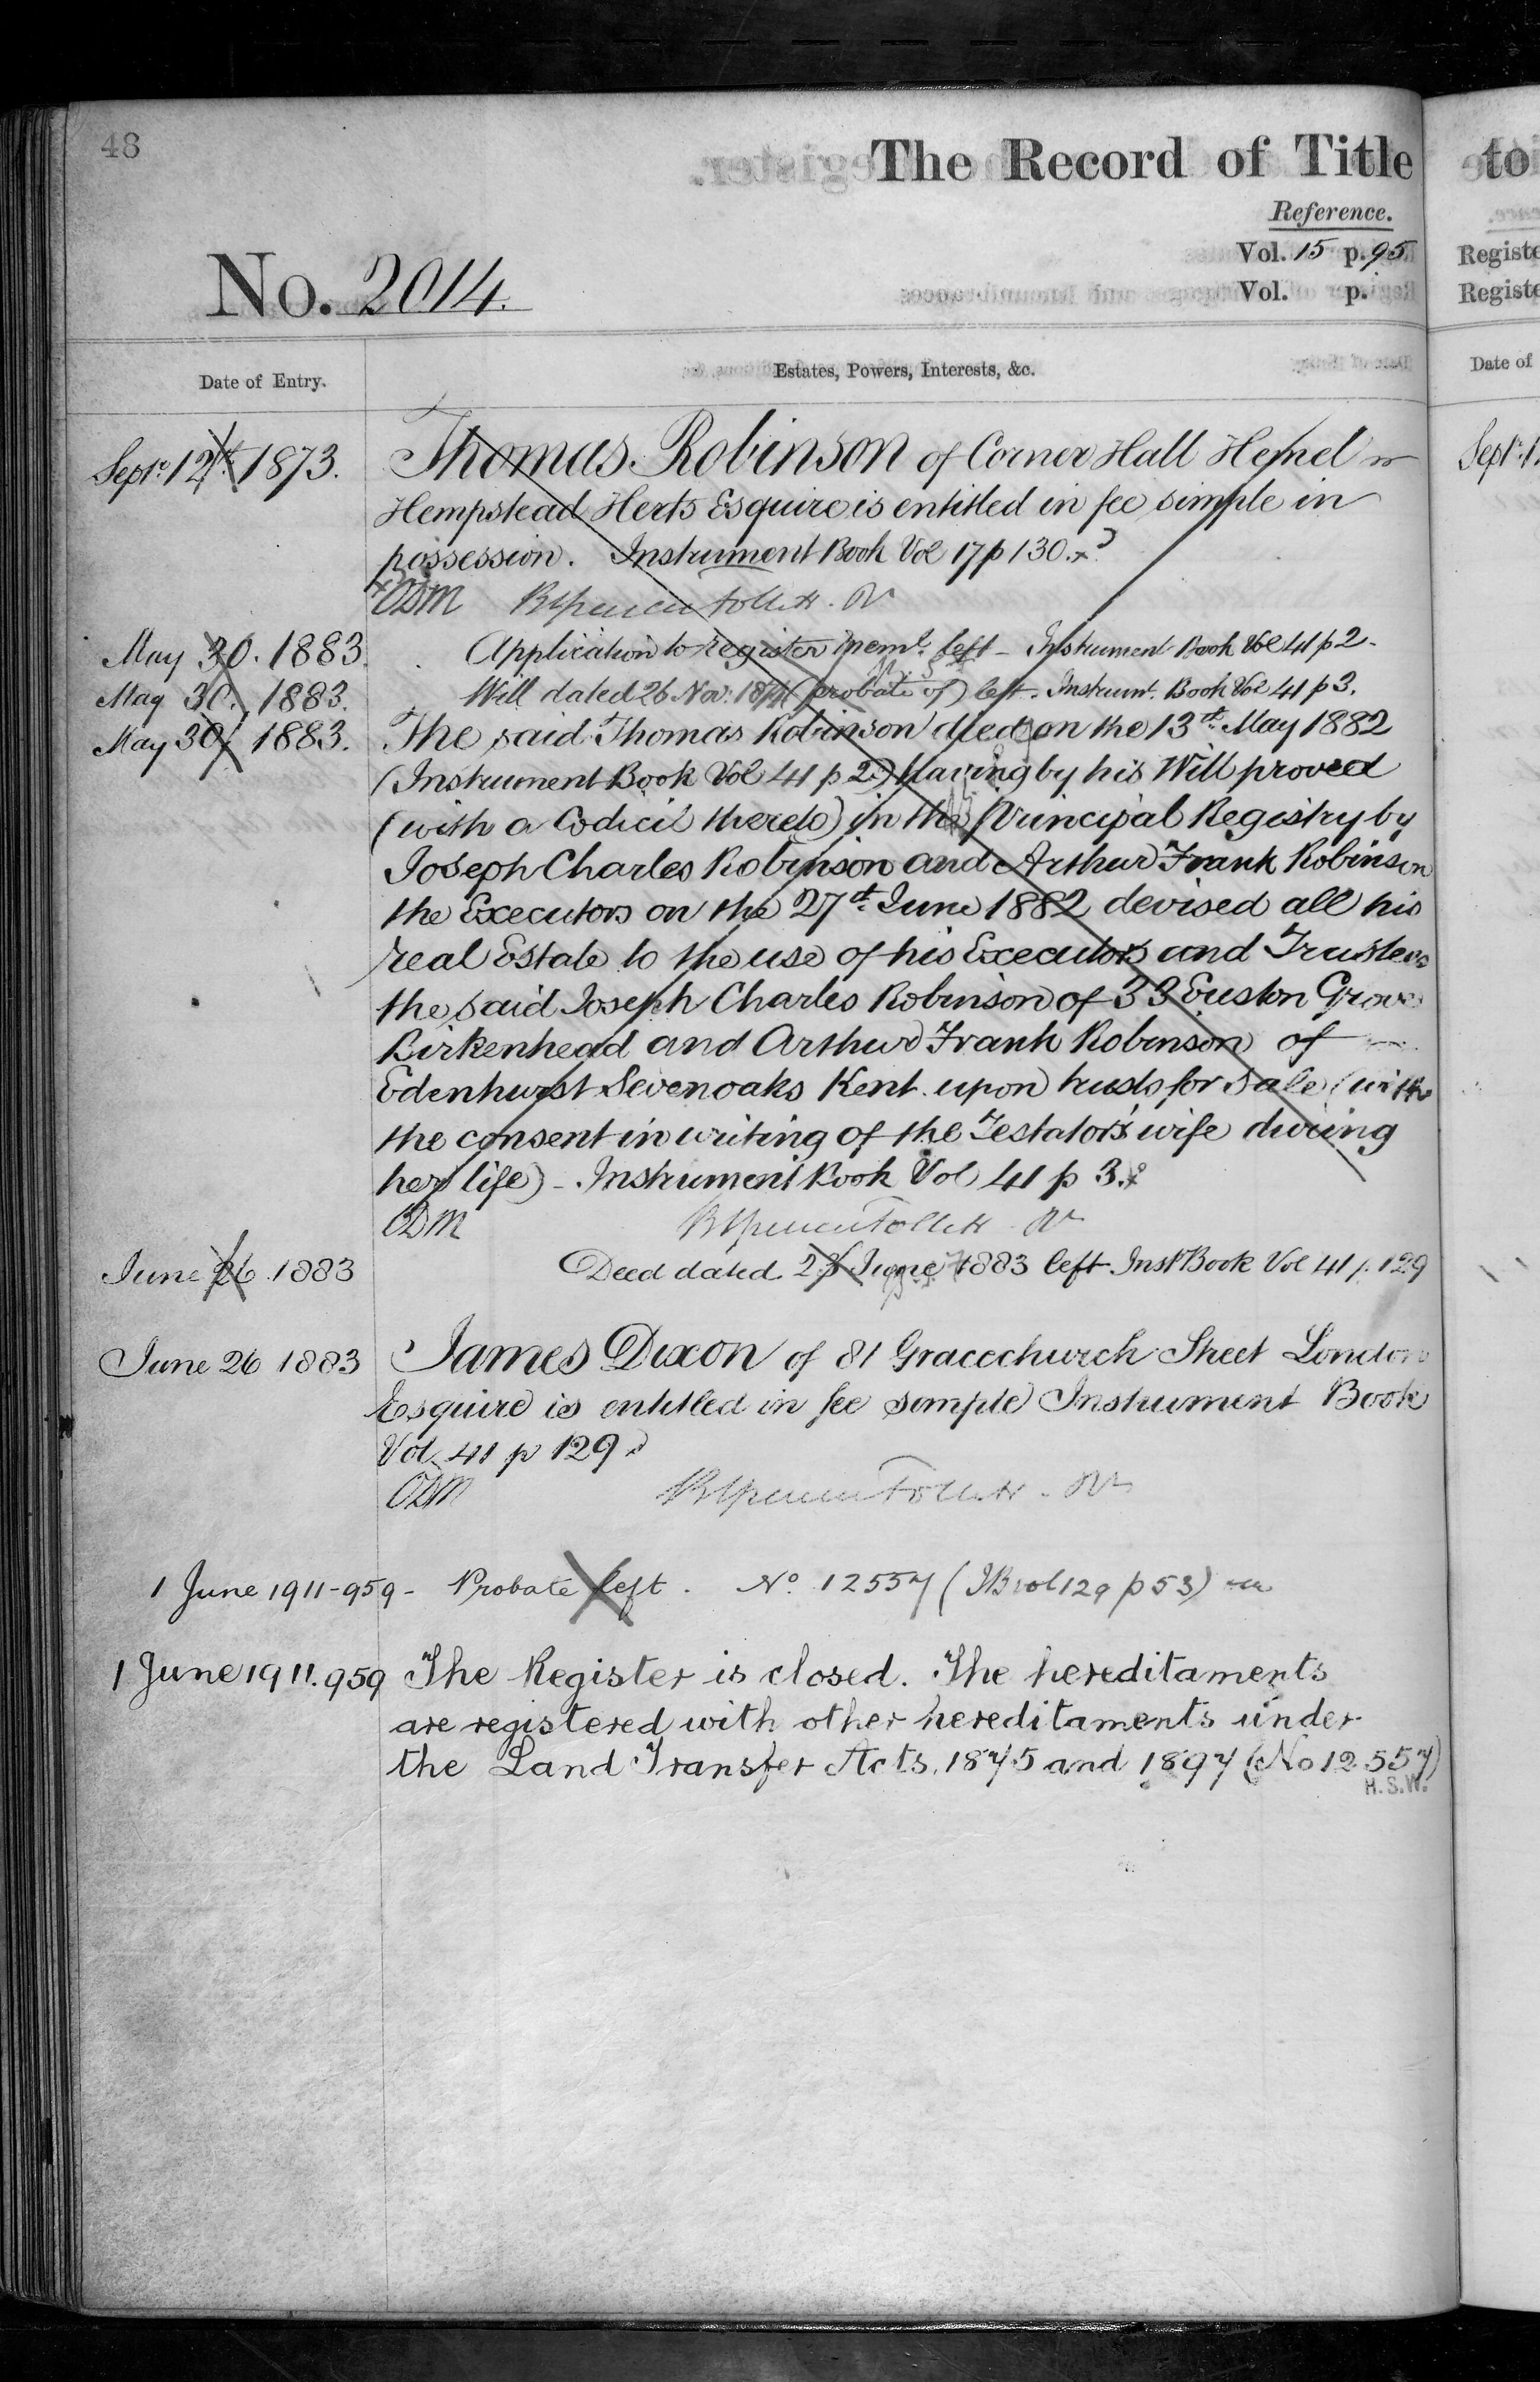 48
The Record of Title
Reference.
Vol. 15 p. 95
Vol. p.
No. 2014.
Date of Entry.
Estates, Powers, Interests, &c.
Sept. 12th 1873. Thomas Robinson of Corner Hall Hemel
Hempstead Herts Esquire is entitled in fee simple in
possession. Instrument Book Vol 17 p 130.
ODM
May 30. 1883. Application to register Memt. left - Instrument Book Vol 41 p 2.
May 30. 1883. Will dated 26 Nov. 1874 (probate of) left. Instrumt. Book Vol 41 p 3.
May 30 1883. The said Thomas Robinson died on the 13th May 1882
(Instrument Book Vol 41 p 2.) Having by his Will proved
(with a Codicil thereto) in the Principal Registry by
Joseph Charles Robinson and Arthur Frank Robinson
the Executors on the 27th June 1882 devised all his
real Estate to the use of his Executors and Trustees
the said Joseph Charles Robinson of 33 Euston Grove
Birkenhead and Arthur Frank Robinson of
Edenhurst Sevenoaks Kent upon trusts for sale (with
the consent in writing of the Testators wife during
her life) - Instrument Book Vol 41 p 3.
ODM
June 26 1883 Deed dated June 1883 left Inst Book Vol 41 p. 129
June 26 1883 James Dixon of 81 Gracechurch Street London
Esquire is entitled in fee simple Instrument Book
Vol. 41 p 129
ODM
1 June 1911 - 959 - Probate left. No. 12557 (IB vol 129 p 53)
1 June 1911. 959 The Register is closed. The hereditaments
are registered with other hereditaments under
the Land Transfer Acts, 1875 and 1897 (No 12557)
H.S.W.
to
Registe
Registe
Date of
Sept. 1